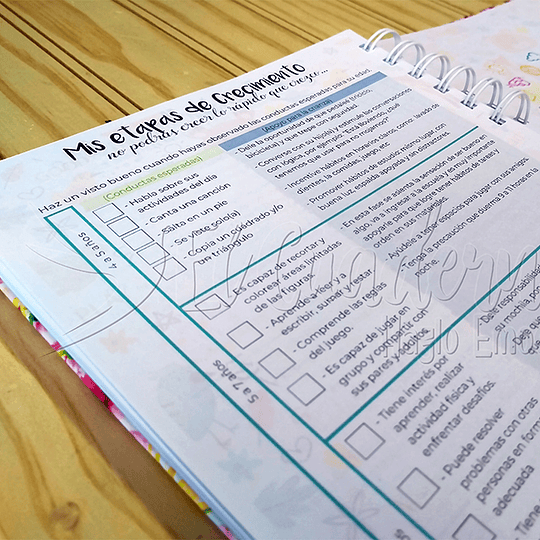 Mis etapas de Crecimiento
no podrás creer lo rápido que crezco...
Haz un visto bueno cuando hayas observado las conductas esperadas para su edad.
(Conductas esperadas)
4 a 5 años
- Habla sobre sus
actividades del día
- Canta una canción
- Salta en un pie
- Se viste solo(a)
- Copia un cuadrado y/o
un triángulo
(Apoyo para la crianza)
- Dele la oportunidad de que pedalee (triciclo,
bicicleta) y que trepe con seguridad.
- Converse con su hijo(a) y estimule las conversaciones
con lógica, por ejemplo, "Está lloviendo, ¿Qué
tenemos que usar para no mojarnos?"
- Incentive hábitos en horarios claros, como: lavado de
dientes, la comida, juego, etc.
- Promover hábitos de estudio mismo lugar con
buena luz, útiles a disposición y orden.
5 a 7 años
- Es capaz de recortar y
colorear áreas limitadas
de las figuras
- Aprende a leer y a
escribir, sumar y restar.
- Comprende las reglas
del juego.
- Es capaz de jugar en
grupo y compartir con
sus pares y adultos.
- En esta fase se asienta la sensación de ser bueno en
algo, va a ingresar a la escuela y es muy importante
apoyarle para que logre tener hábitos de tareas y
orden en sus materiales.
- Ayúdele a tener espacios para jugar con los amigos.
- Tenga la precaución que duerma 9 a 11 horas en la
noche.
- Tiene interés por
aprender, realizar
actividad física y
enfrentar desafíos.
- Puede resolver
problemas con otras
personas en forma
adecuada
- Dele responsabilidad
su mochila,
Cuaderno